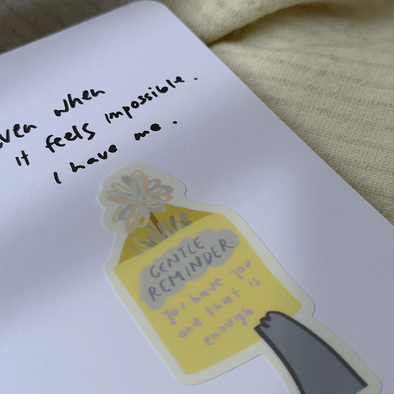 even when
it feels impossible.
I have me.
GENTLE
REMINDER:
you have you
and that is
enough